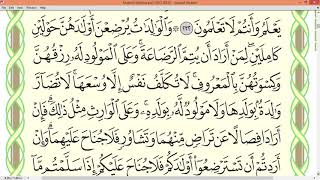 يَعْلَمُ وَأَنتُمْ لَا تَعْلَمُونَ ٢٣٢ وَٱلْوَٰلِدَٰتُ يُرْضِعْنَ أَوْلَٰدَهُنَّ حَوْلَيْنِ
كَامِلَيْنِ لِمَنْ أَرَادَ أَن يُتِمَّ ٱلرَّضَاعَةَ وَعَلَى ٱلْمَوْلُودِ لَهُۥ رِزْقُهُنَّ
وَكِسْوَتُهُنَّ بِٱلْمَعْرُوفِ لَا تُكَلَّفُ نَفْسٌ إِلَّا وُسْعَهَا لَا تُضَآرَّ
وَٰلِدَةٌۢ بِوَلَدِهَا وَلَا مَوْلُودٌ لَّهُۥ بِوَلَدِهِۦ وَعَلَى ٱلْوَارِثِ مِثْلُ ذَٰلِكَ فَإِنْ
أَرَادَا فِصَالًا عَن تَرَاضٍ مِّنْهُمَا وَتَشَاوُرٍ فَلَا جُنَاحَ عَلَيْهِمَا وَإِنْ
أَرَدتُّمْ أَن تَسْتَرْضِعُوٓا۟ أَوْلَٰدَكُمْ فَلَا جُنَاحَ عَلَيْكُمْ إِذَا سَلَّمْتُم مَّآ